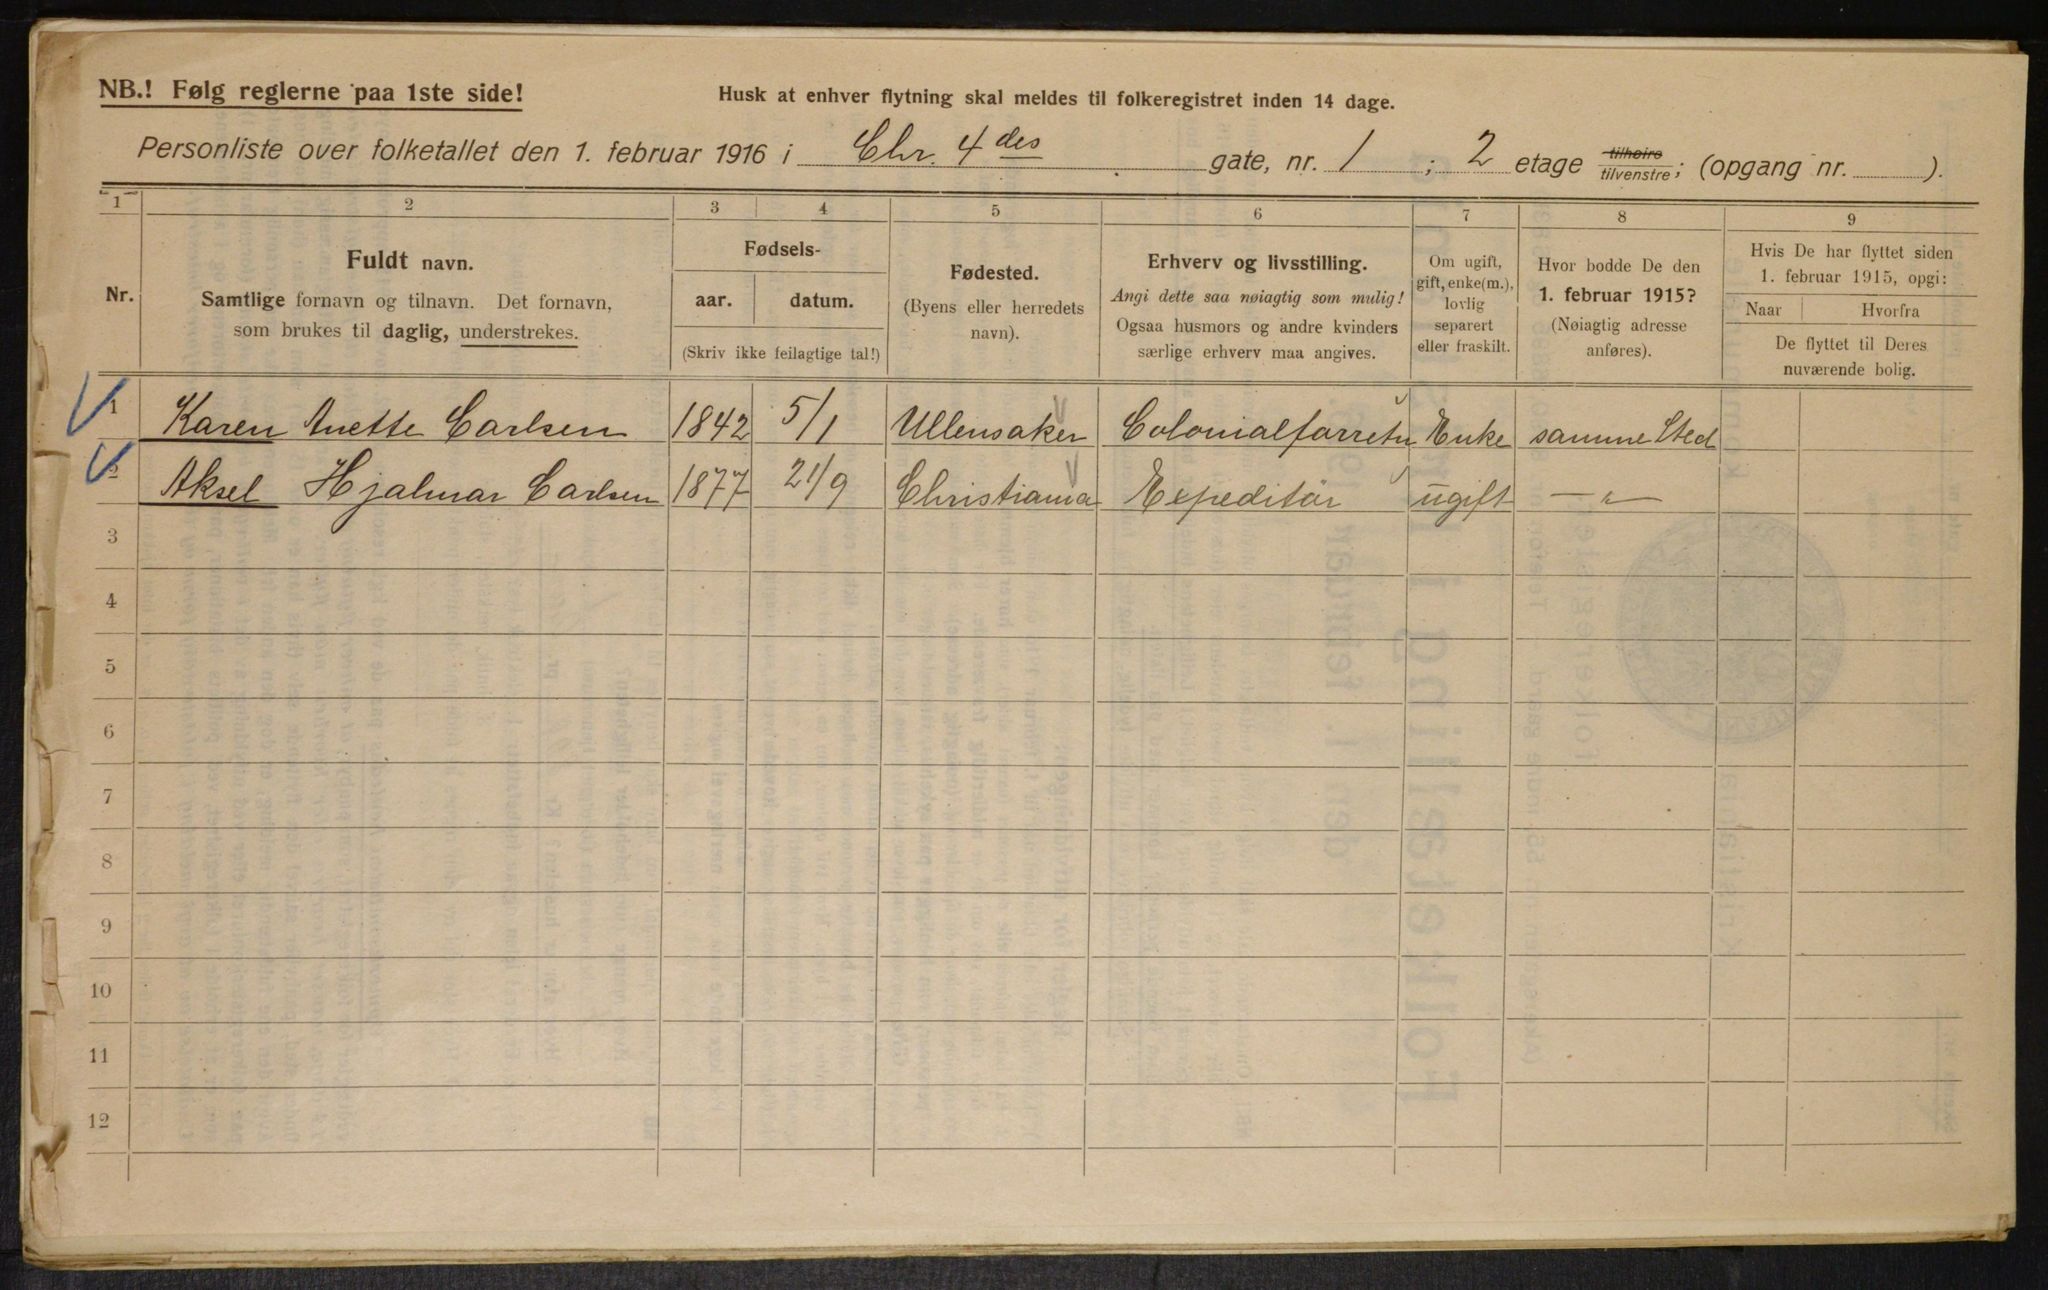 NB.! Følg reglerne paa 1ste side!
Husk at enhver flytning skal meldes til folkeregistret inden 14 dage.
Personliste over folketallet den 1. februar 1916 i Chr. 4des gate, nr. 1; 2 etage tilhøire tilvenstre; (opgang nr. ).
1 2 3 4 5 6 7 8 9
Nr.
Fuldt navn.
Samtlige fornavn og tilnavn. Det fornavn,
som brukes til daglig, understrekes.
Fødsels-
aar. datum.
(Skriv ikke feilagtige tal!)
Fødested.
(Byens eller herredets
navn).
Erhverv og livsstilling.
Angi dette saa nøiagtig som mulig!
Ogsaa husmors og andre kvinders
særlige erhverv maa angives.
Om ugift,
gift, enke(m.),
lovlig
separert
eller fraskilt.
Hvor bodde De den
1. februar 1915?
(Nøiagtig adresse
anføres).
Hvis De har flyttet siden
1. februar 1915, opgi:
Naar Hvorfra
De flyttet til Deres
nuværende bolig.
1 Karen Anette Carlsen 1842 5/1 Ullensaker Colonialforretn Enke samme Sted
2 Aksel Hjalmar Carlsen 1877 21/9 Christiania Expeditör ugift —"—
3
4
5
6
7
8
9
10
11
12